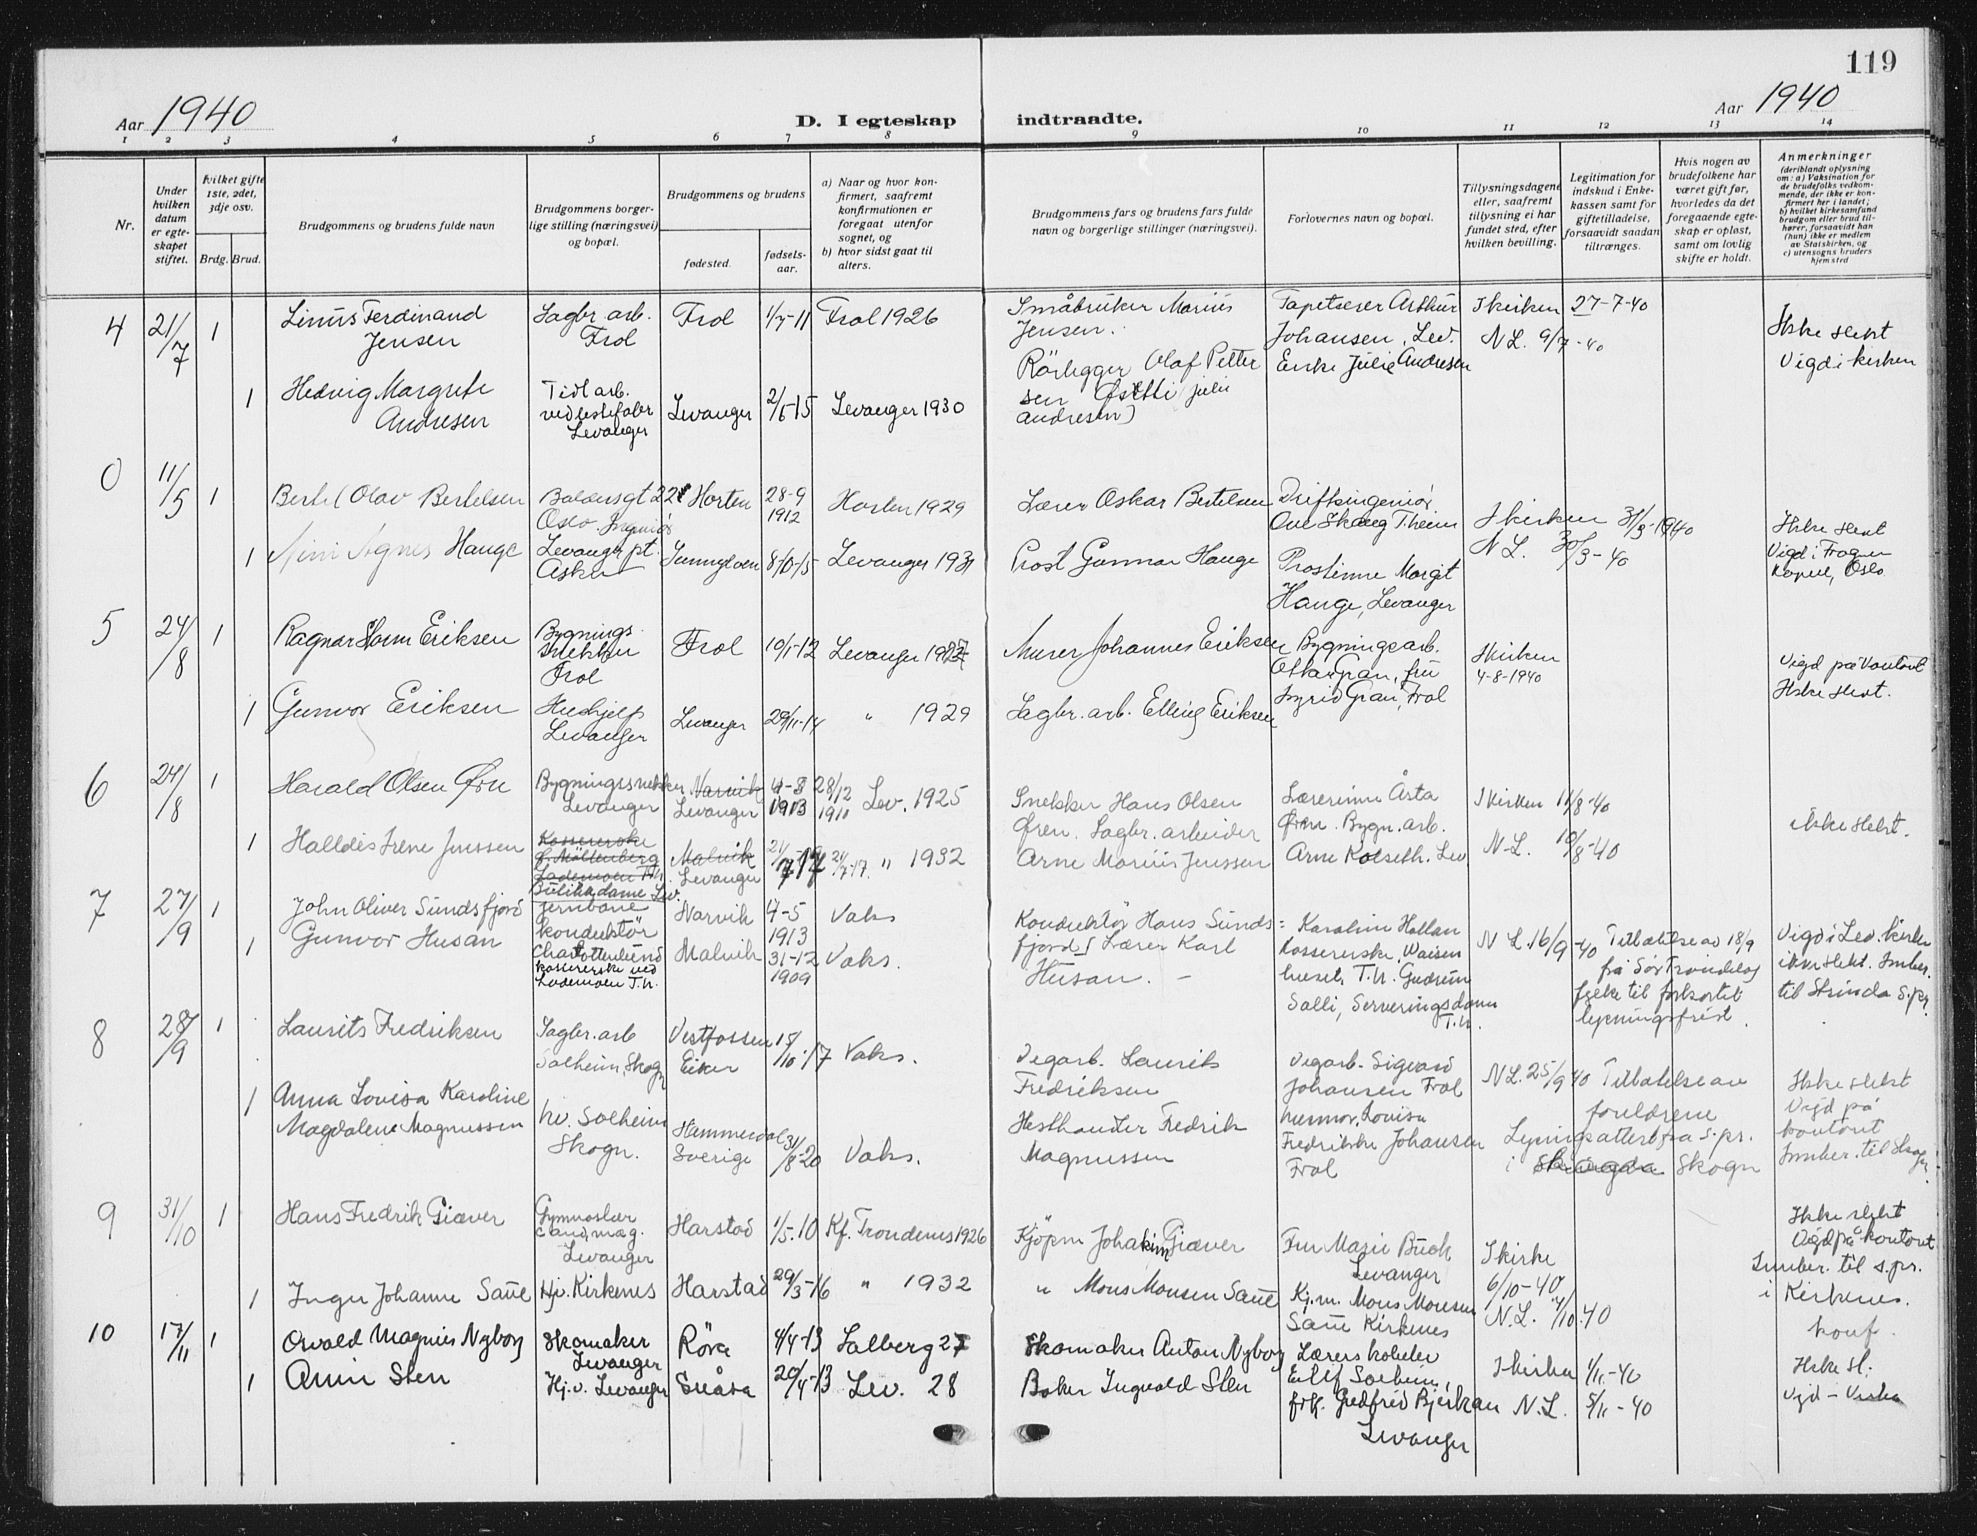 119
Aar 1940
D. I egteskap indtraadte.
Aar 1940
1 2 3 4 5 6 7 8 9 10 11 12 13 14
Nr.
Under hvilken datum er egteskapet stiftet.
Hvilket gifte 1ste, 2det, 3dje osv.
Brdg. Brud.
Brudgommens og brudens fulde navn
Brudgommens borgerlige stilling (næringsvei) og bopæl.
Brudgommens og brudens
fødested.
fødselsaar.
a) Naar og hvor konfirmert, saafremt konfirmationen er foregaat utenfor sognet, og
b) hvor sidst gaat til alters.
Brudgommens fars og brudens fars fulde navn og borgerlige stillinger (næringsvei).
Forlovernes navn og bopæl.
Tillysningsdagene eller, saafremt tillysning ei har fundet sted, efter hvilken bevilling.
Legitimation for indskud i Enkekassen samt for giftetilladelse, forsaavidt saadan tiltrænges.
Hvis nogen av brudefolkene har været gift før, hvorledes da det foregaaende egteskap er opløst, samt om lovlig skifte er holdt.
Anmerkninger
(deriblandt oplysning om: a) Vaksination for de brudefolks vedkommende, der ikke er konfirmert her i landet; b) hvilket kirkesamfund brudgom eller brud tilhører, forsaavidt han (hun) ikke er medlem av Statskirken, og c) utensogns bruders hjemsted
4 21/7 1 Linus Ferdinand Jensen
Sagbr. arb. Frol
Frol 1/7-11 Frol 1926
Småbruker Marius Jensen.
Tapetserer Arthur Johansen, Lev.
I kirken 27-7-40
N L. 9/7-40
Enke Julie Andresen
Ikke slekt
Vigd i kirken
1 Hedvig Margrete Andresen
Tidl arb. ved
Levanger
Levanger 2/5-15 Levanger 1930
Rörlegger Olaf Pettersen
Julie Andresen)
0 11/5 1 Bertel Olav Bertelsen
Baldersgt 22 Oslo. Ingeniör
Horten 28-9 1912 Horten 1929
Lærer Oskar Bertelsen
Driftsingeniör Ove Skaug T.heim
I kirken 31/3-1940
N L. 30/3-40
Ikke slekt
Vigd i Frogner kapell, Oslo
1 Mimi Agnes Hauge
Levanger pt. Asker
8/10-15 Levanger 1931
Prost Gunnar Hauge
Prostinne Margit Hauge, Levanger
5 24/8 1 Ragnar Storm Eriksen
Bygnings snekker Frol
Frol 10/1-12 Levanger 1927
Murer Johannes Eriksen
Bygningsarb. Ottar Gran, fru Ingrid Gran, Frol
I kirken 4-8-1940
Vigd på kontoret
Ikke slekt.
1 Gunvor Eriksen
Hushjelp Levanger
Levanger 29/11-14 " 1929
Sagbr. arb. Elling Eriksen
6 24/8 1 Harald Olsen Øren
Bygningssnekker Levanger
Narvik Levanger
4-8 1913 28/12 1910 Lev. 1925
Snekker Hans Olsen Øren.
Lærerinne Åsta Øren.
I kirken 11/8-40
N-L. 10/8-40
ikke slekt.
1 Halldis Irene Jenssen
Kassererske
Lademoen T.h.
Butikkdame Lev.
Malvik Levanger
21/7 17 " 1932
Sagbr. arbeider Arne Marius Jenssen
Bygn. arb. Arne Kolseth. Lev
7 27/9 1 John Oliver Sundsfjord
jernbane konduktör
Narvik 4-5 1913 Vaks
Konduktör Hans Sundsfjord
Karoline Hallan Kassererske, Waisenhuset, T.h.
N L. 16/9-40
Tillatelse av 18/9 fra Sör Tröndelag fylke til forkortet lysningsfrist.
Vigd i Lev. kirke
ikke slekt. Innber.
til Strinda S.pr.
1 Gunvor Husan
Charlottenlund kassererske ved Lademoen T.h.
Malvik 31-12 1909 Vaks.
Lærer Karl Husan. -
Gudrun Salli, Serveringsdame T.h.
8 28/9 1 Laurits Fredriksen
Sagbr. arb Solheim, Skogn
Vestfossen Eiker 15/10-17 Vaks.
Vegarb. Laurits Fredriksen
Vegarb. Sigvard Johansen Frol
N L. 25/9 40
Tillatelse av foreldrene
Lysningsattest fra s.pr. i Skogn
Ikke slekt
Vigd på kontoret
Innber. til Skogn
1 Anna Lovisa Karoline Magdalene Magnussen
hv. Solheim Skogn.
Hammerdal Sverige 31/8-20 Vaks.
Hesthandler Fredrik Magnussen
husmor, Lovisa Fredrikke Johansen Frol
9 31/10 1 Hans Fredrik Giæver
Gymnaslær cand. mag. Levanger
Harstad 1/5-10 Kf. Trondenes 1926
Kjöpm Johakim Giæver
Fru Marie Buch Levanger
I kirke 6/10-40
N. L. /10.40
Ikke slekt
Vigd på kontoret
Innber. til s.pr.
i Kirkenes.
konf.
1 Inger Johanne Saue
Hj. v. Kirkenes
Harstad 29/3-16 " 1932
" Mons Monsen Saue
Kj.m. Mons Monsen Saue Kirkenes
10 17/11 1 Osvald Magnus Nyborg
Skomaker Levanger
Röra 4/4-13 Salberg 27
Skomaker Anton Nyborg
I kirken 1/11-40
N. L. 5/11-40
Ikke sl.
Vigd - kirka
1 Anni Sten
Hj. v. Levanger
Snåsa 20/4-13 Lev. 28
Baker Ingvald Sten
frk. Gudfrid Bjerkan Levanger